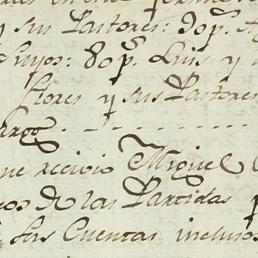 y sus Pastores: 90 p.s
Suyos: 80 p.s Luis y
Flores y sus Pastores
Cargo
ne recivio Miguel
os de las Partidas
las Cuentas inclusos